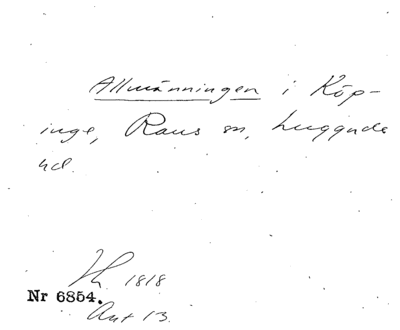 Allmänningen i Köp-
inge, Raus sn, Luggude
hd.
1818
Nr 6854.
Ant 13.